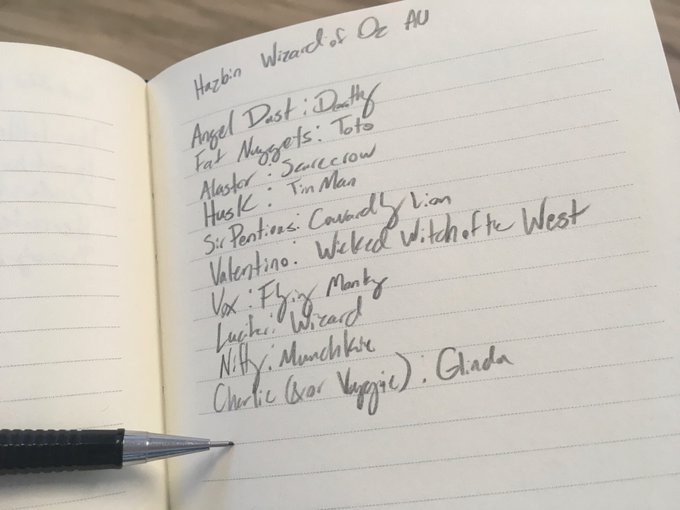 Hazbin Wizard of Oz AU
Angel Dust: Dorothy
Fat Nuggets: Toto
Alastor: Scarecrow
Husk: Tin Man
Sir Pentious: Cowardly Lion
Valentino: Wicked Witch of the West
Vox: Flying Monkey
Lucifer: Wizard
Nifty: Munchkin
Charlie (&or Vaggie): Glinda